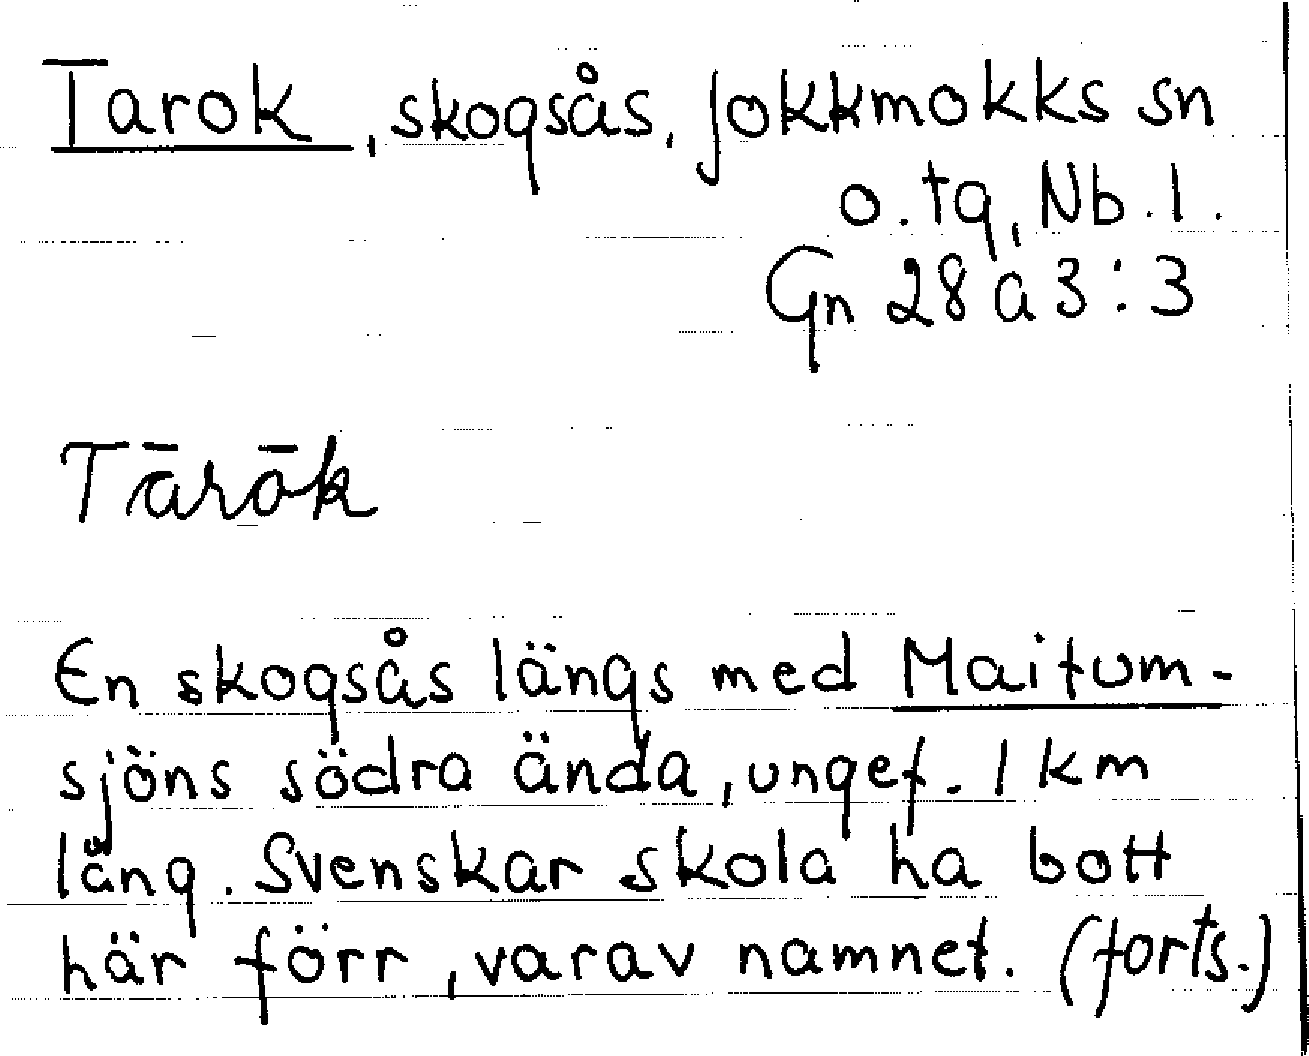 Tarok, skogsås, Jokkmokks sn
o. tg, Nb. l.
Gn 28 a 3:3
Tārōk
En skogsås längs med Maitum-
sjöns södra ända, ungef. 1 km
lång. Svenskar skola ha bott
här förr, varav namnet. (forts.)